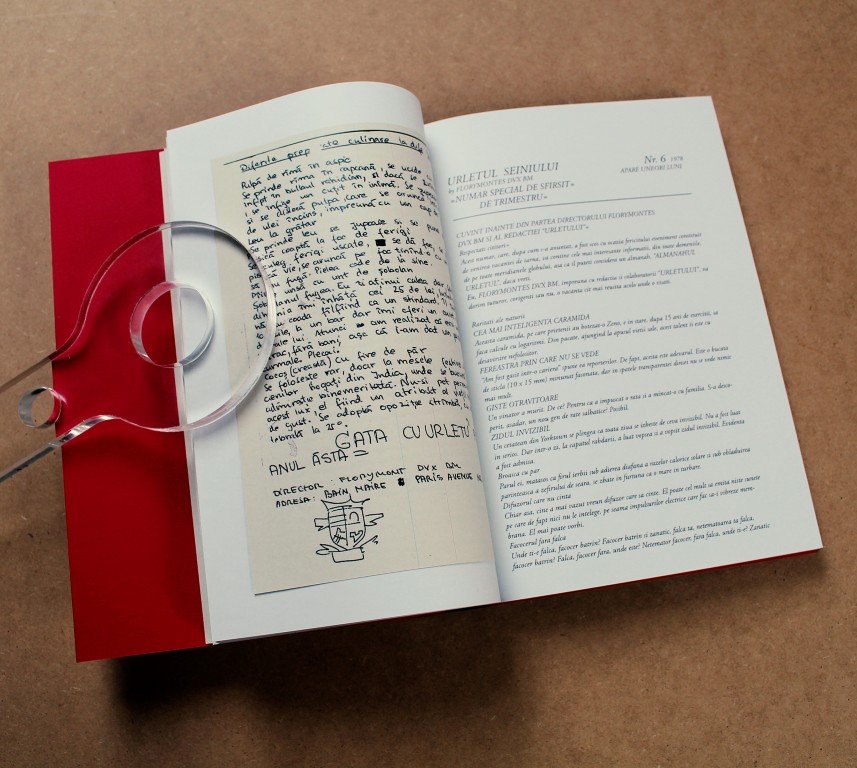 Diferite prep ate culinare la dul
Pulpă de rîmă în aspic
Se prinde rîma în capcană, se ucide
înfipt în bulbul rahidian, și dacă, se
, se înfige un cuțit în inimă. Se
și se disecă pulpa care se aruncă
de ulei încins, împreună cu un cap
Leu la grătar
Se prinde leu se jupoaie și se pune
coaptă la foc de ferigi
ferigi uscate, se dă foc,
vie, se aruncă pe foc ținînd-o cu
fugă. Pielea cade de la sine.
unsă cu unt de șobolan
fugea. Eu îi ațineam calea dar
îmi cei 25 de lei
coada fîlfîind ca un stindard. Îl
la un bar dar îmi oferi un
lui. Atunci am realizat că era
fără bani, așa că i-am dat un
normale. Plecai.
Cocoș (creastă) cu fire de păr
Se folosește rar, doar la mesele festive
bogați din India, unde se bucură
admirație binemeritată. Nu-și pot permite
acest lux el fiind un atribut al
de gust. Se adoptă opoziție strîmbă,
la 25°.
GATA CU URLETU
ANUL ĂSTA
DIRECTOR: FLORYMONT DVX BM
ADRESA: BAIN MARE PARIS AVENUE
URLETUL SEINIULUI
by FLORYMONTES DVX BM
»NUMAR SPECIAL DE SFIRSIT«
DE TRIMESTRU»
Nr. 6 1978
APARE UNEORI LUNI
CUVINT INAINTE DIN PARTEA DIRECTORULUI FLORYMONTES
DVX BM SI AL REDACTIEI "URLETULUI"»
Respectati cuitori»
Acest numar, care, dupa cum s-a anuntat, a fost scos cu ocazia fericitului eveniment constituit
de venirea vacantei de iarna, va contine cele mai interesante informatii, din toate domeniile,
de pe toate meridianele globului, asa ca il puteti considera un almanah, "ALMANAHUL
URLETUL", daca vreti.
Eu, FLORYMONTES DVX BM, impreuna cu redactia si colaboratorii "URLETULUI", va
dorim tuturor, corigenti sau nu, o vacanta cit mai reusita acolo unde o vreti.
Raritati ale naturii
CEA MAI INTELIGENTA CARAMIDA
Aceasta caramida, pe care prietenii au botezat-o Zeno, e in stare, dupa 15 ani de exercitii, sa
faca calcule cu logaritmi. Din pacate, ajungind la apusul vietii sale, acest talent ii este cu
desavirsire nefolositor.
FEREASTRA PRIN CARE NU SE VEDE
"Am fost gasit intr-o cariera" spune ea reporterilor. De fapt, acesta este adevarul. Este o bucata
de sticla (10 x 15 mm) minunat fasonata, dar in spatele transparentei direct nu se vede nimic
mai mult.
GISTE OTRAVITOARE
Un vinator a murit. De ce? Pentru ca a impuscat o rata si a mincat-o cu familia. S-a desco-
perit, asadar, un nou gen de rate salbatice! Posibil.
ZIDUL INVIZIBIL
Un cetatean din Yorktown se plingea ca toata ziua se izbeste de ceva invizibil. Nu a fost luat
in serios. Dar intr-o zi, la capatul rabdarii, a luat vopsea si a vopsit zidul invizibil. Evidenta
a fost admisa.
Broasca cu par
Parul ei, matasos ca firul ierbii sub adierea diafana a razelor calorice solare si sub obladuirea
parinteasca a zefirului de seara, se zbate in furtuna ca o mare in turbare.
Difuzorul care nu cinta
Chiar asa, cine a mai vazut vreun difuzor care sa cinte. El poate cel mult sa emita niste sunete
pe care de fapt nici nu le intelege, pe seama impulsurilor electrice care fac sa-i vibreze mem-
brana. El mai poate vorbi.
Facocerul fara falca
Unde ti-e falca, facocer batrin? Facocer batrin si zanatic, falca ta, netematoarea ta falca,
facocer batrin? Falca, facocer fara, unde este? Netemator facocer, fara falca, unde ti-e? Zanatic